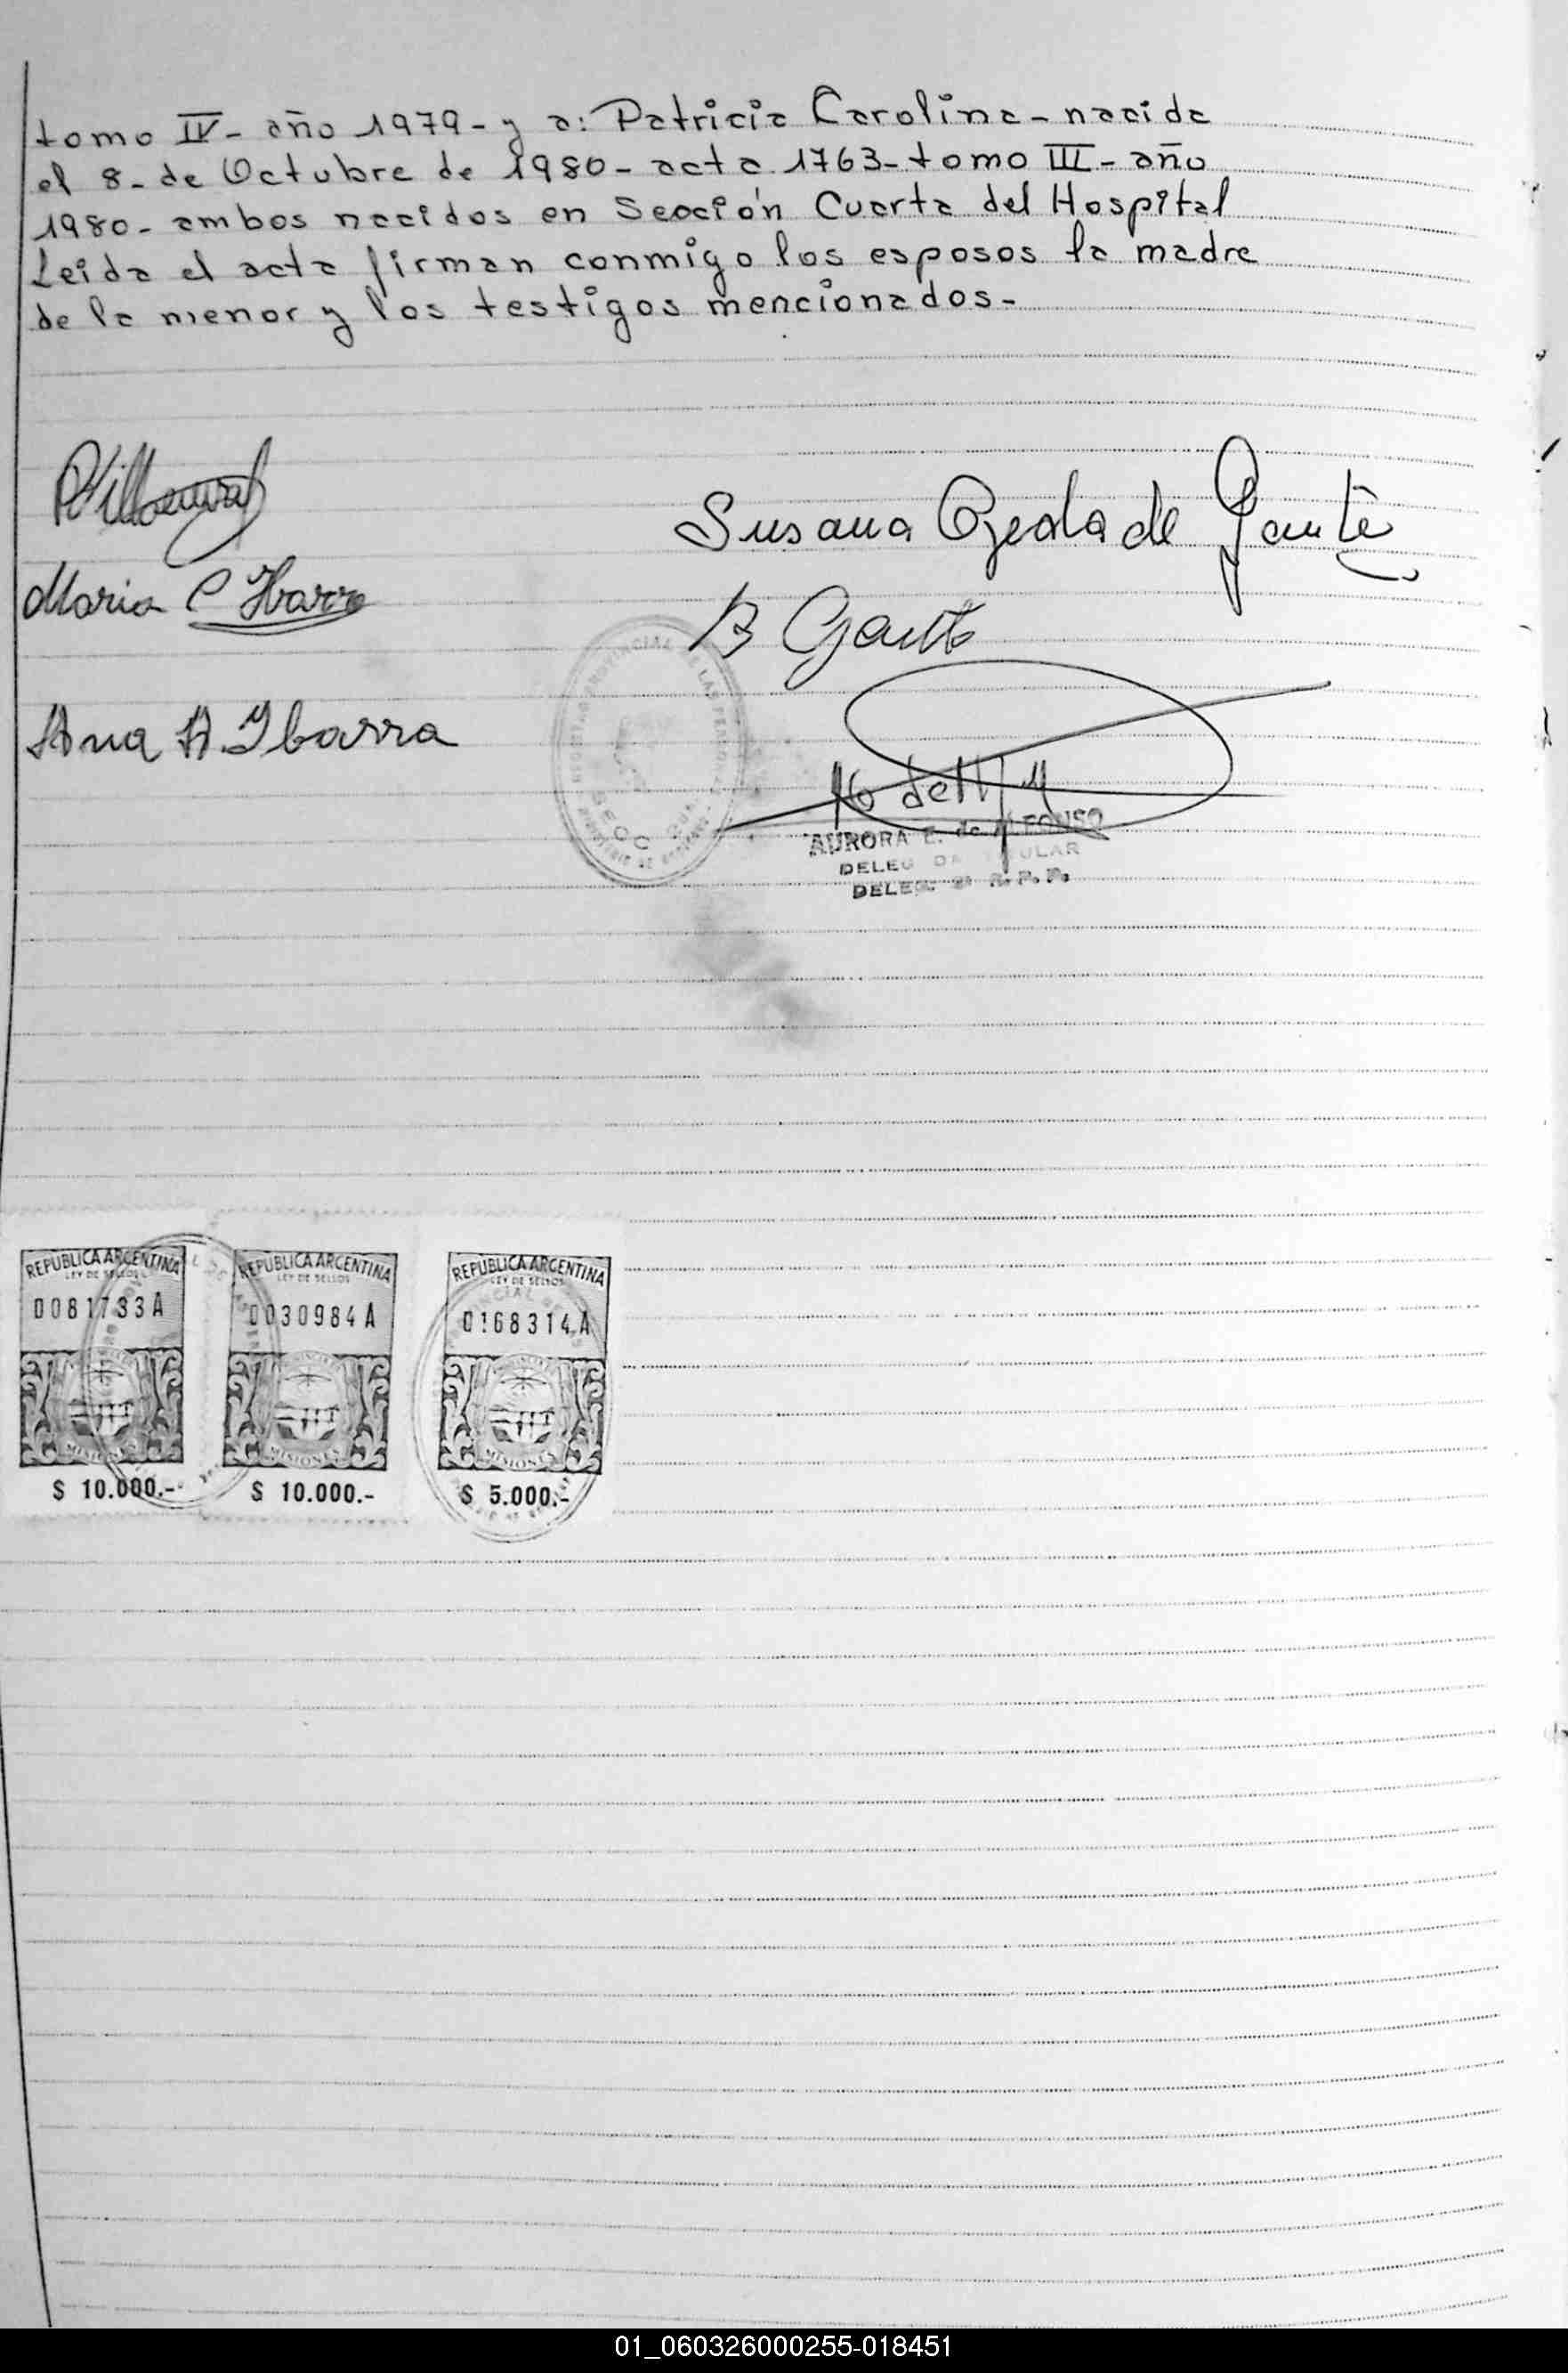 tomo IV- año 1979- y a: Patricia Carolina- nacida
el 8- de Octubre de 1980- acta 1763- tomo III- año
1980- ambos nacidos en Sección Cuarta del Hospital
Leida el acta firman conmigo los esposos la madre
de la menor y los testigos mencionados-
Susana Ojeda de Gauto
Maria C Ibarra
B Gauto
Ana A Ibarra
AURORA E. de ALFONSO
DELEGADA TITULAR
DELEG. R.P.P.
REPUBLICA ARGENTINA
LEY DE SELLOS
0081733A
MISIONES
$ 10.000.-
REPUBLICA ARGENTINA
LEY DE SELLOS
0030984A
MISIONES
$ 10.000.-
REPUBLICA ARGENTINA
LEY DE SELLOS
0168314A
MISIONES
$ 5.000.-
01_060326000255-018451